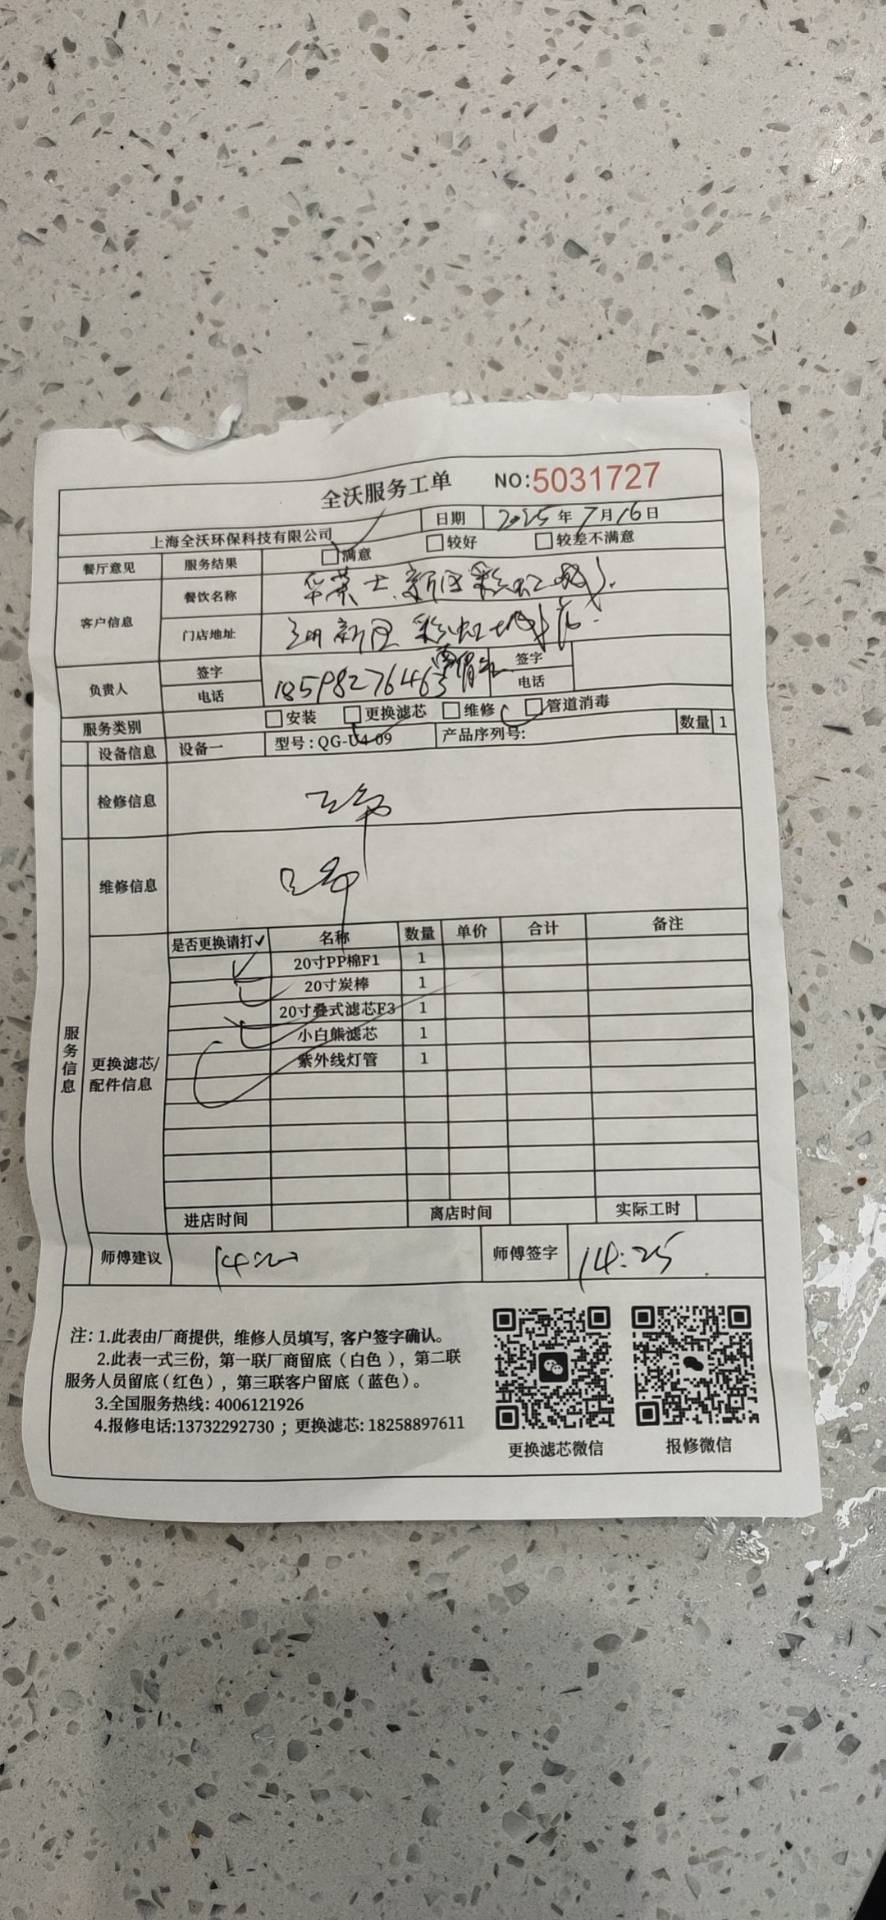 全沃服务工单 NO:5031727
上海全沃环保科技有限公司 日期 2025年7月16日
餐厅意见 服务结果 满意 较好 较差不满意
客户信息 餐饮名称 华莱士.新区彩虹城
门店地址 新区彩虹城店
负责人 签字 签字
电话 18598276463 电话
服务类别 安装 更换滤芯 维修 管道消毒
设备信息 设备一 型号:QG-U4-09 产品序列号: 数量 1
检修信息
维修信息
服务信息
更换滤芯/配件信息
是否更换请打✓ 名称 数量 单价 合计 备注
✓ 20寸PP棉F1 1
20寸炭棒 1
20寸叠式滤芯F3 1
小白熊滤芯 1
紫外线灯管 1
进店时间 离店时间 实际工时
师傅建议 14:20 师傅签字 14:25
注:1.此表由厂商提供，维修人员填写，客户签字确认。
2.此表一式三份，第一联厂商留底（白色），第二联
服务人员留底（红色），第三联客户留底（蓝色）。
3.全国服务热线: 4006121926
4.报修电话:13732292730 ; 更换滤芯: 18258897611
更换滤芯微信 报修微信